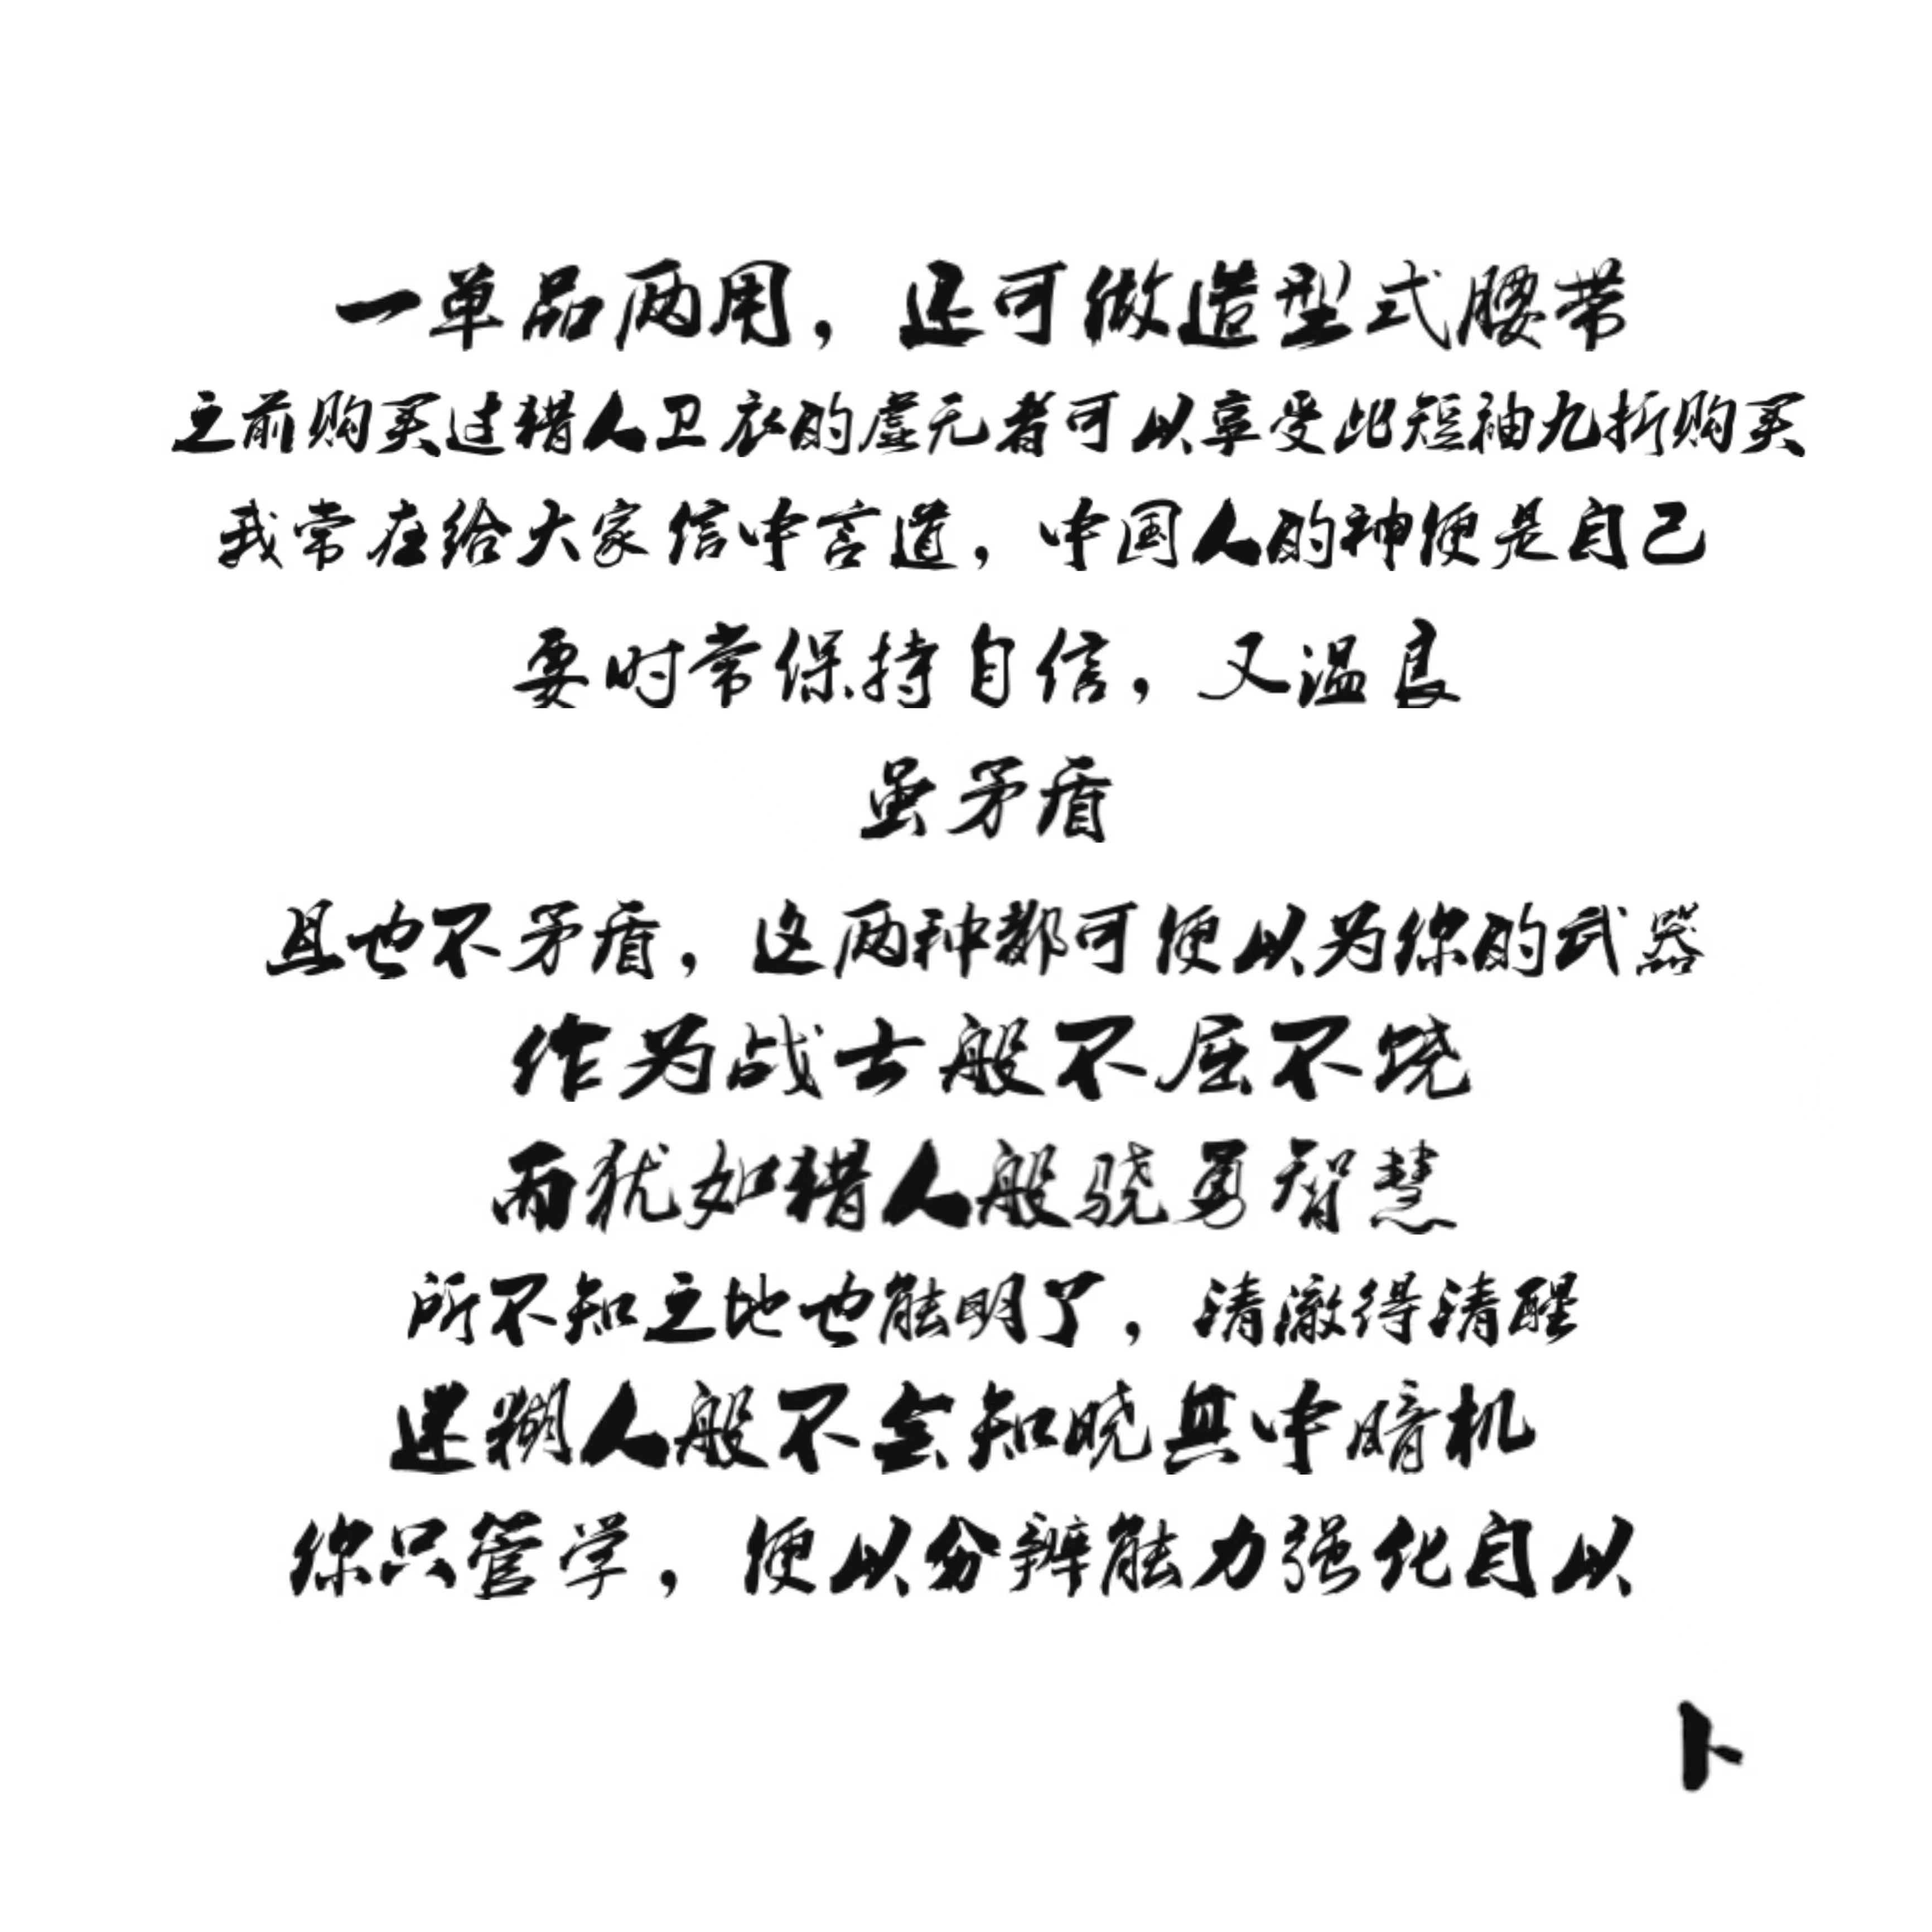 一单品两用，还可做造型式腰带
之前购买过猎人卫衣的虚无者可以享受此短袖九折购买
我常在给大家信中言道，中国人的神便是自己
要时常保持自信，又温良
虽矛盾
且也不矛盾，这两种都可便以为你的武器
作为战士般不屈不饶
而犹如猎人般骁勇智慧
所不知之地也能明了，清澈得清醒
迷糊人般不会知晓其中暗机
你只管学，便以分辨能力强化自以
卜